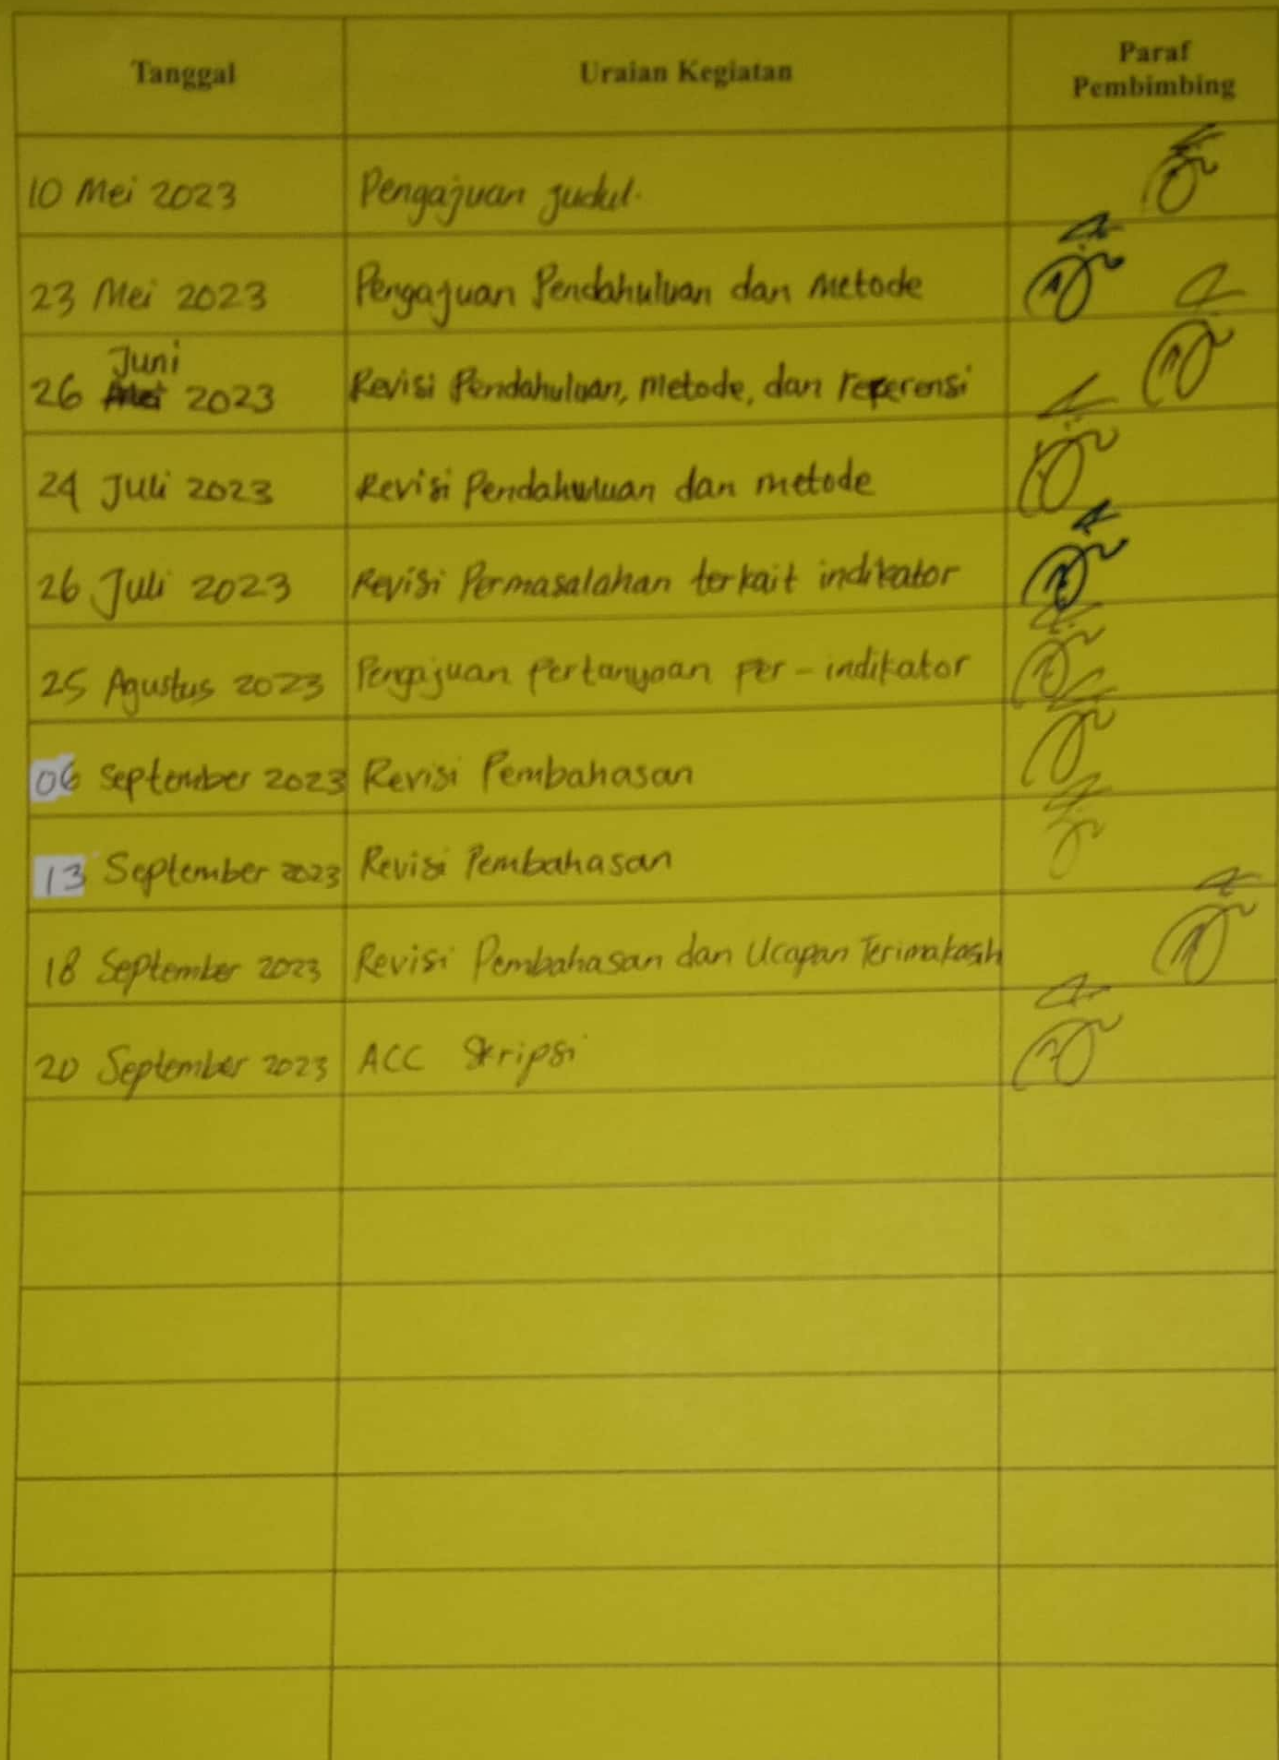 Tanggal Uraian Kegiatan Paraf Pembimbing
10 Mei 2023 Pengajuan judul.
23 Mei 2023 Pengajuan Pendahuluan dan Metode
26 Juni 2023 Revisi Pendahuluan, Metode, dan referensi
24 Juli 2023 Revisi Pendahuluan dan metode
26 Juli 2023 Revisi Permasalahan terkait indikator
25 Agustus 2023 Pengajuan Pertanyaan Per-indikator
06 September 2023 Revisi Pembahasan
13 September 2023 Revisi Pembahasan
18 September 2023 Revisi Pembahasan dan Ucapan Terimakasih
20 September 2023 ACC Skripsi